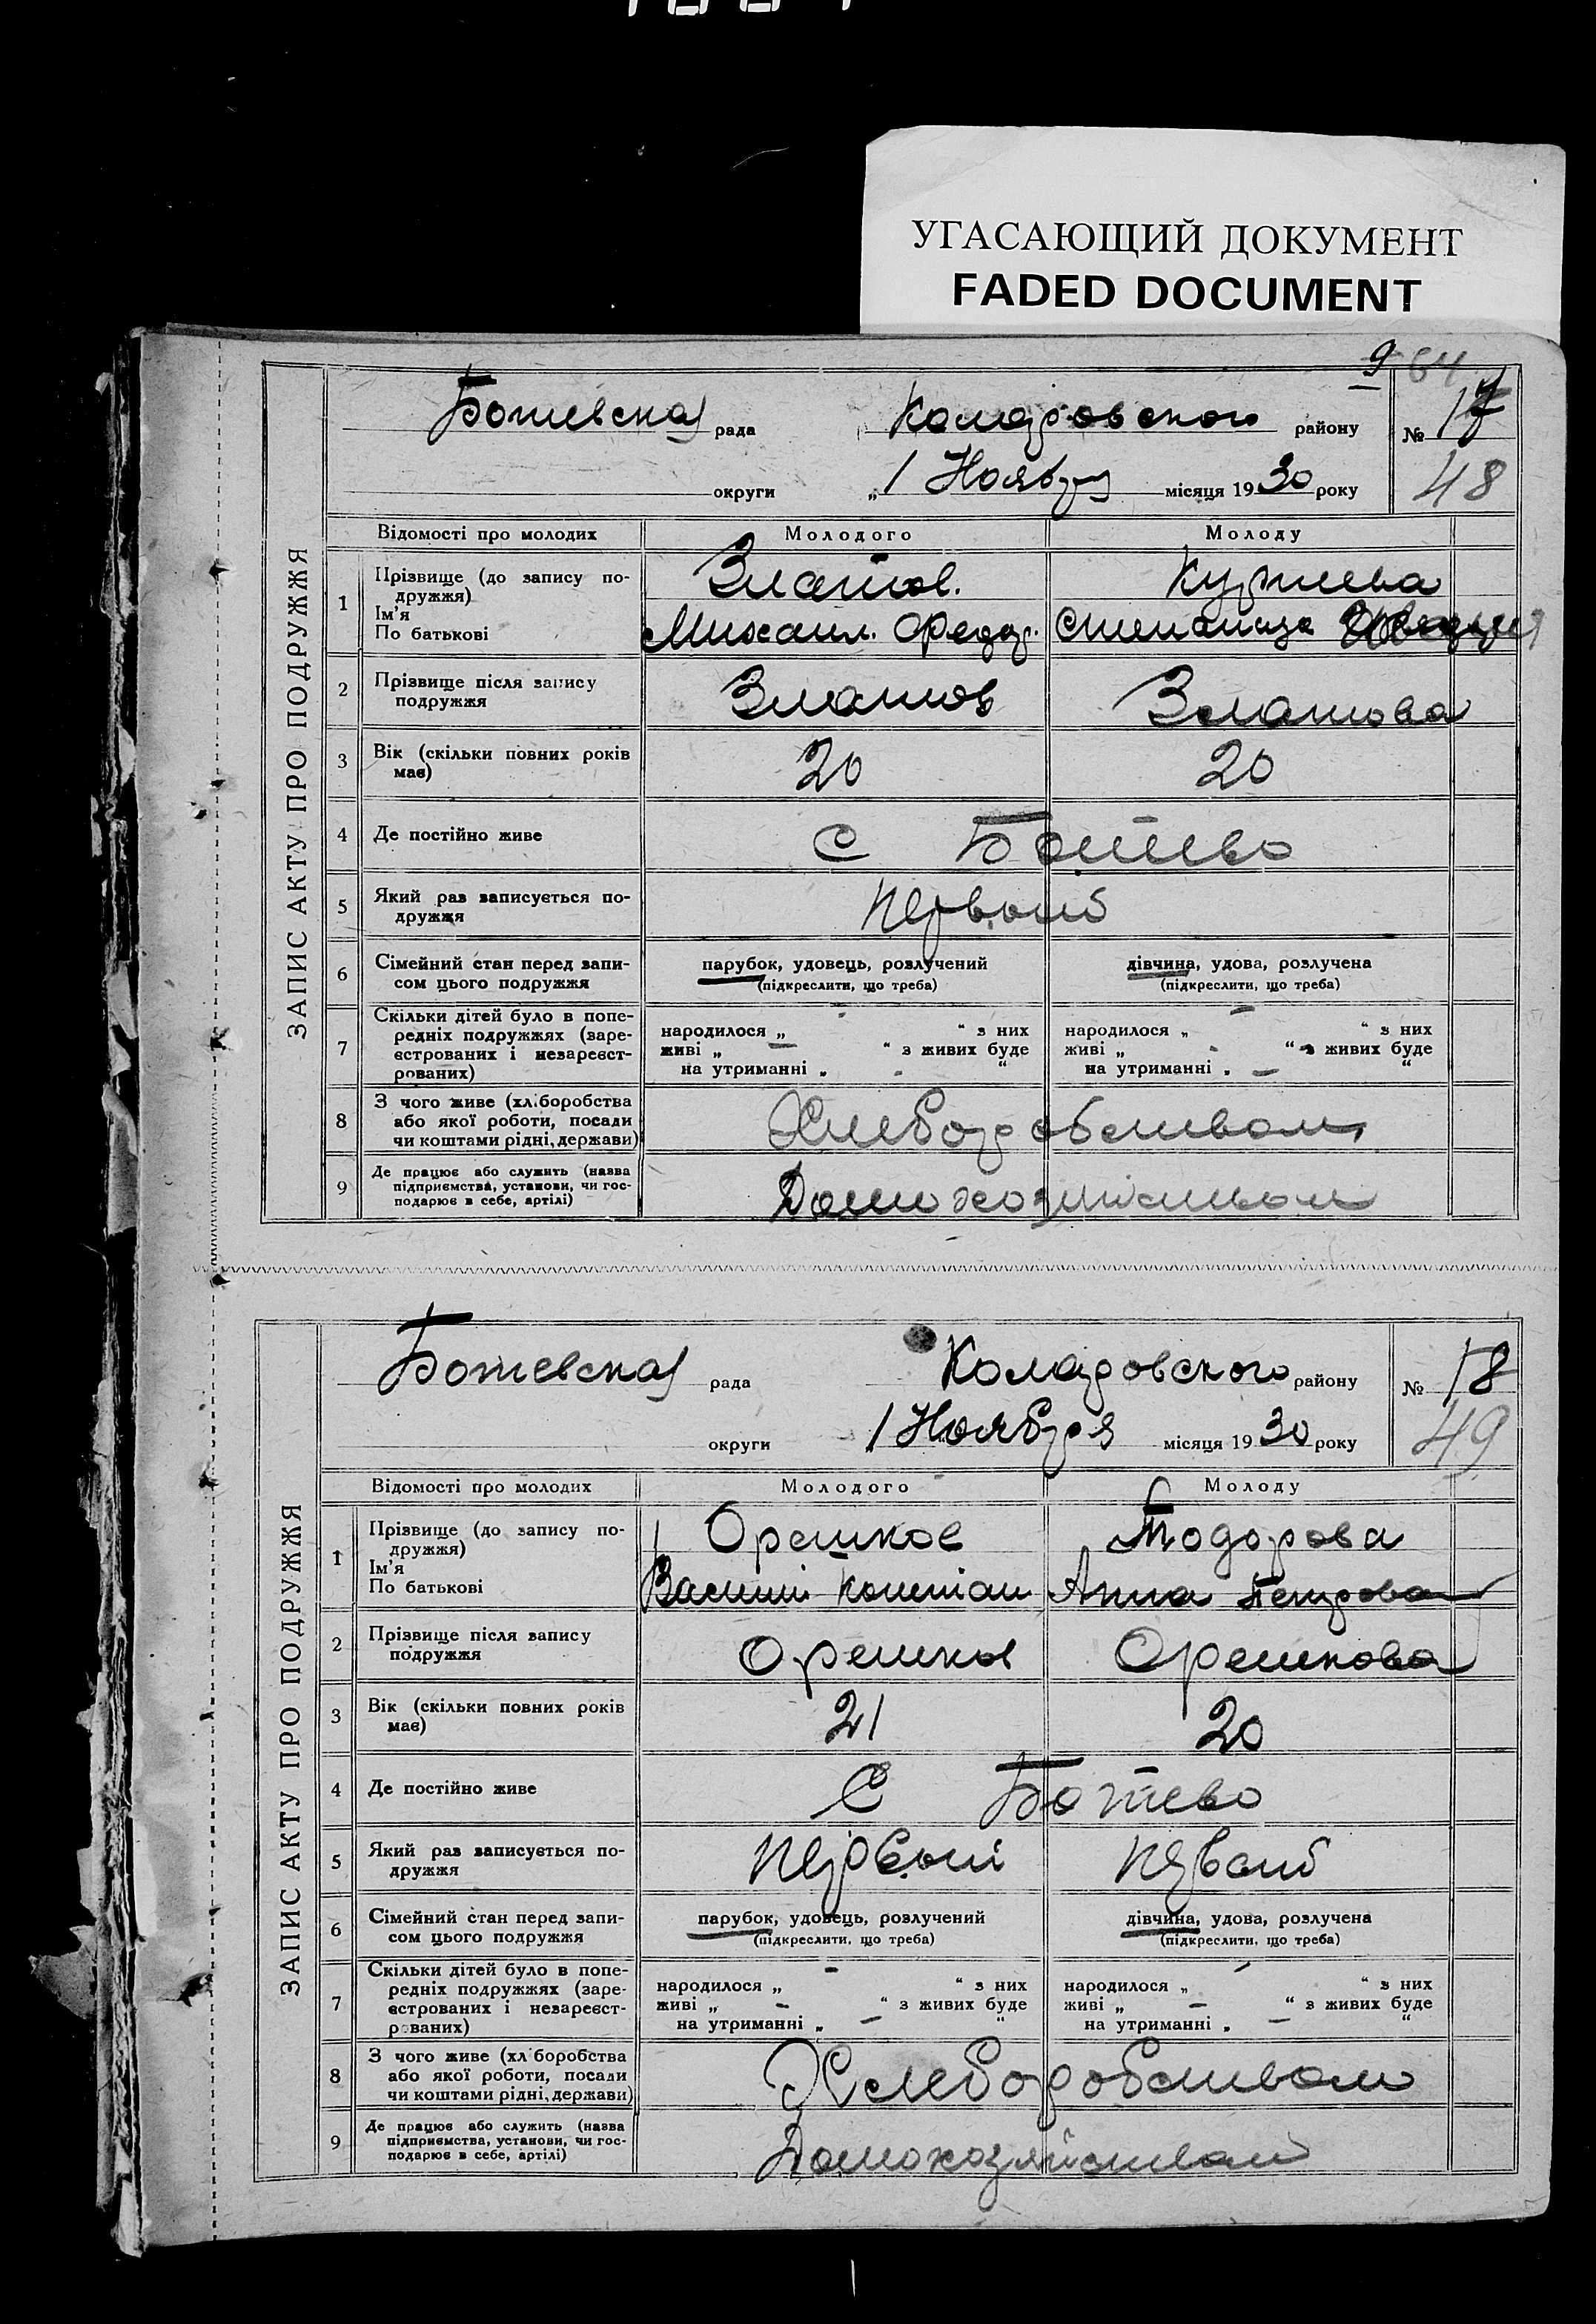 УГАСАЮЩИЙ ДОКУМЕНТ
FADED DOCUMENT
9 64
Ботевская рада Коларовского району № 17
округи „1 Ноября місяця 1930 року 48
ЗАПИС АКТУ ПРО ПОДРУЖЖЯ
Відомості про молодих Молодого Молоду
1 Прізвище (до запису по-
дружжя)
Ім'я
По батькові
Златов. Куртева
Михаил. Федор. Степанида
2 Прізвище після запису
подружжя
Златов Златова
3 Вік (скільки повних років
має)
20 20
4 Де постійно живе С Ботево
5 Який раз записується по-
дружжя
Первый
6 Сімейний стан перед запи-
сом цього подружжя
парубок, удовець, розлучений дівчина, удова, розлучена
(підкреслити, що треба) (підкреслити, що треба)
7 Скільки дітей було в попе-
редніх подружжях (заре-
єстрованих і незареєст-
рованих)
народилося „ - “ з них народилося „ - “ з них
живі „ - “ з живих буде живі „ - “ з живих буде
на утриманні „ - “ на утриманні „ - “
8 З чого живе (хліборобства
або якої роботи, посади
чи коштами рідні, держави)
Хлеборобством
9 Де працює або служить (назва
підприємства, установи, чи гос-
подарює в себе, артілі)
Домохозяйством
Ботевская рада Коларовского району № 18
округи 1 Ноября місяця 1930 року 49
ЗАПИС АКТУ ПРО ПОДРУЖЖЯ
Відомості про молодих Молодого Молоду
1 Прізвище (до запису по-
дружжя)
Ім'я
По батькові
Орешков Тодорова
Василий Констан Анна Петрова
2 Прізвище після запису
подружжя
Орешков Орешкова
3 Вік (скільки повних років
має)
21 20
4 Де постійно живе С Ботево
5 Який раз записується по-
дружжя
Первый Первый
6 Сімейний стан перед запи-
сом цього подружжя
парубок, удовець, розлучений дівчина, удова, розлучена
(підкреслити, що треба) (підкреслити, що треба)
7 Скільки дітей було в попе-
редніх подружжях (заре-
єстрованих і незареєст-
рованих)
народилося „ - “ з них народилося „ - “ з них
живі „ - “ з живих буде живі „ - “ з живих буде
на утриманні „ - “ на утриманні „ - “
8 З чого живе (хліборобства
або якої роботи, посади
чи коштами рідні, держави)
Хлеборобством
9 Де працює або служить (назва
підприємства, установи, чи гос-
подарює в себе, артілі)
Домохозяйством